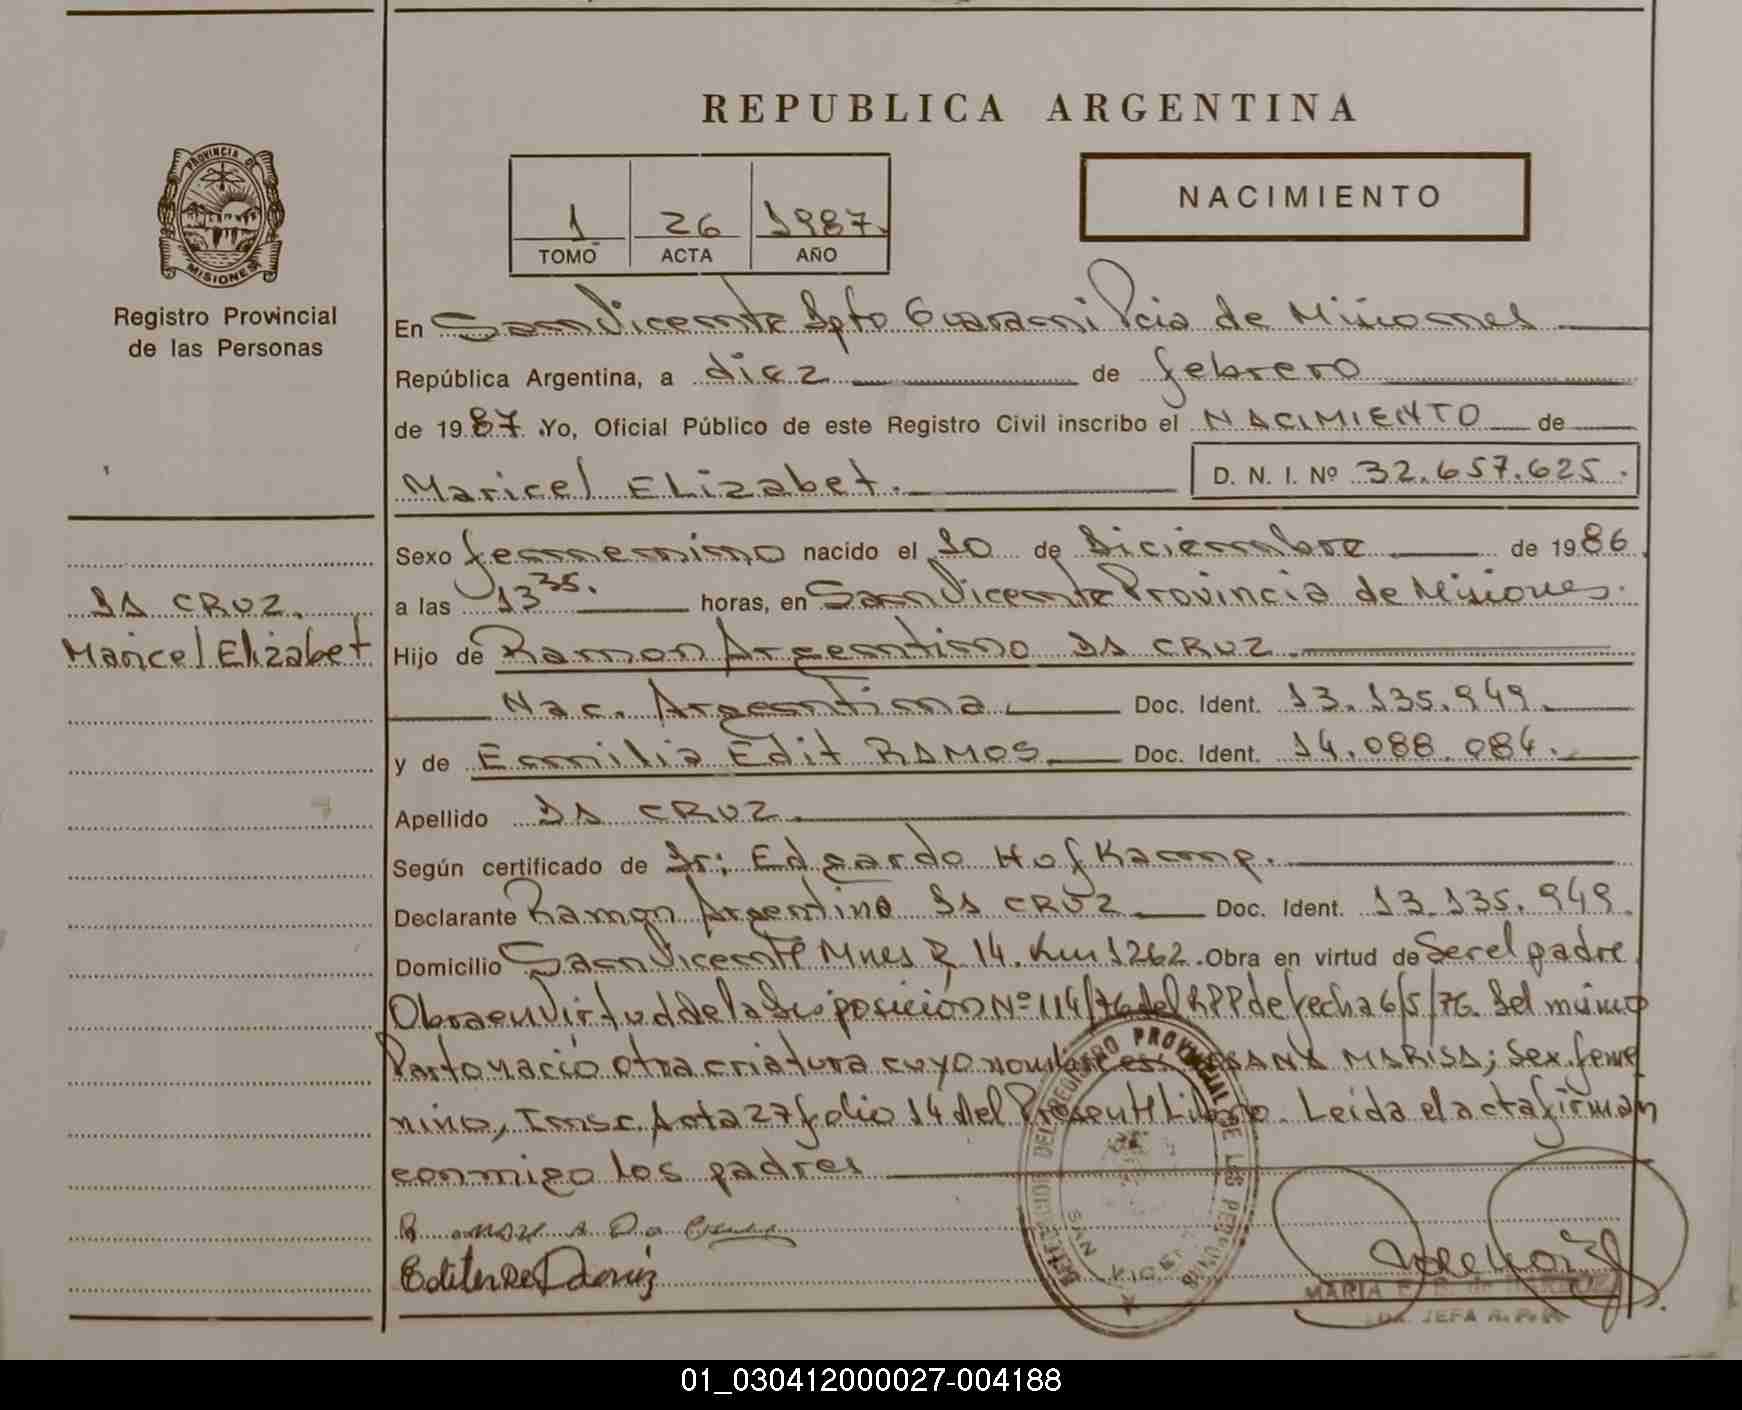 REPUBLICA ARGENTINA
PROVINCIA DE
MISIONES
Registro Provincial
de las Personas
1 26 1987.
TOMO ACTA AÑO
NACIMIENTO
En San Vicente Dpto Guarani Pcia de Misiones
República Argentina, a diez de febrero
de 1987. Yo, Oficial Público de este Registro Civil inscribo el NACIMIENTO de
Maricel ELizabet. D. N. I. Nº 32.657.625.
DA CRUZ.
Maricel Elizabet
Sexo femenino nacido el 10 de Diciembre de 1986
a las 13 35. horas, en San Vicente Provincia de Misiones.
Hijo de Ramon Argentino DA CRUZ.
Nac. Argentina Doc. Ident. 13.135.949.
y de Emilia Edit RAMOS. Doc. Ident. 14.088.084.
Apellido DA CRUZ.
Según certificado de Dr; Edgardo Hof Kamp.
Declarante Ramon Argentino DA CRUZ Doc. Ident. 13.135.949.
Domicilio San Vicente Mnes R 14. Km 1262. Obra en virtud de Ser el padre
Obra en Virtud de la Disposición Nº 114/76 del RPP de fecha 6/5/76. Del mismo
Parto nació otra criatura cuyo nombre es: MARISA; Sex. feme
nino, Insc. Acta 27 folio 14 del Presente Libro. Leída el acta firman
conmigo los padres
DELEGACION DEL REGISTRO PROVINCIAL DE LAS PERSONAS
SAN VICENTE
MARIA
JEFA R.P.P.
01_030412000027-004188